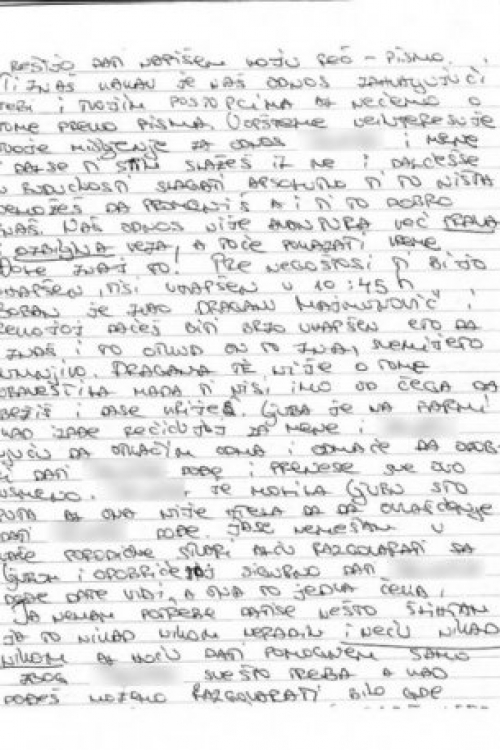 REŠIJO DATI NAPIŠEM MOJU REČ - PISMO.
TI ZNAŠ KAKAV JE NAŠ ODNOS ZAHVALJUJUĆI
TEBI I TVOJIM POSTUPCIMA AL NEĆEMO O
TOME PREKO PISMA. UOPŠTEME NEINTERESUJE
TVOJE MIŠLJENJE ZA ODNOS I MENE
I DALSE TI S TIM SLAŽEŠ IL NE I DALĆESSE
U BUDUĆNOSTI SLAGATI APSOLUTNO TI TO NIŠTA
NEMOŽEŠ DA PROMENIŠ A I TI TO DOBRO
ZNAŠ. NAŠ ODNOS NIJE AVANTURA VEĆ PRAVA
I OZBILJNA VEZA, A TOĆE POKAZATI VREME
DOBE ZNAJ TO! PRE NEGOŠTOSI TI BIJO
UHAPŠEN, TISI UHAPŠEN U 10:45 h,
BOBAN JE ZVAO DRAGANU MAJMUNOVIĆ I
REKAOJOJ DAĆEŠ BITI BRZO UHAPŠEN ETO DA
ZNAŠ I TO OTKUD ON TO ZNA,
DRAGANA TE NIJE O TOME
OBAVESTILA MADA TI NISI IMO OD ČEGA DA
BEŽIŠ I DASE KRIJEŠ. LJUBA JE NA FARMI
KAD IZAĐE REĆIĆUJOJ ZA MENE I
DA OTKAČIM ODMA I ODMAĆE DA ODOB-
RI DATI DOĐE I PRENESE SVE OVO
USMENO. JE MOLILA LJUBU STO
PUTA AL ONA NIJE HTELA DA DA OVLAŠĆENJE
DATI DOĐE. JASE NEMEŠAM U
VAŠE PORODIČNE STVARI ALĆU RAZGOVARATI SA
LJUBOM I ODOBRIĆE JOJ SIGURNO DATI
DOĐE DATE VIDI, A ONA TO JEDVA ČEKA,
JA NEMAM POTREBE DATISE NEŠTO
JA TO NIKAD NIKOM NERADIM I NEĆU NIKAD
NIKOM AL HOĆU DATI POMOGNEM SAMO
ZBOG SVEŠTO TREBA A KAD
DOĐEŠ MOŽEMO RAZGOVARATI BILO GDE